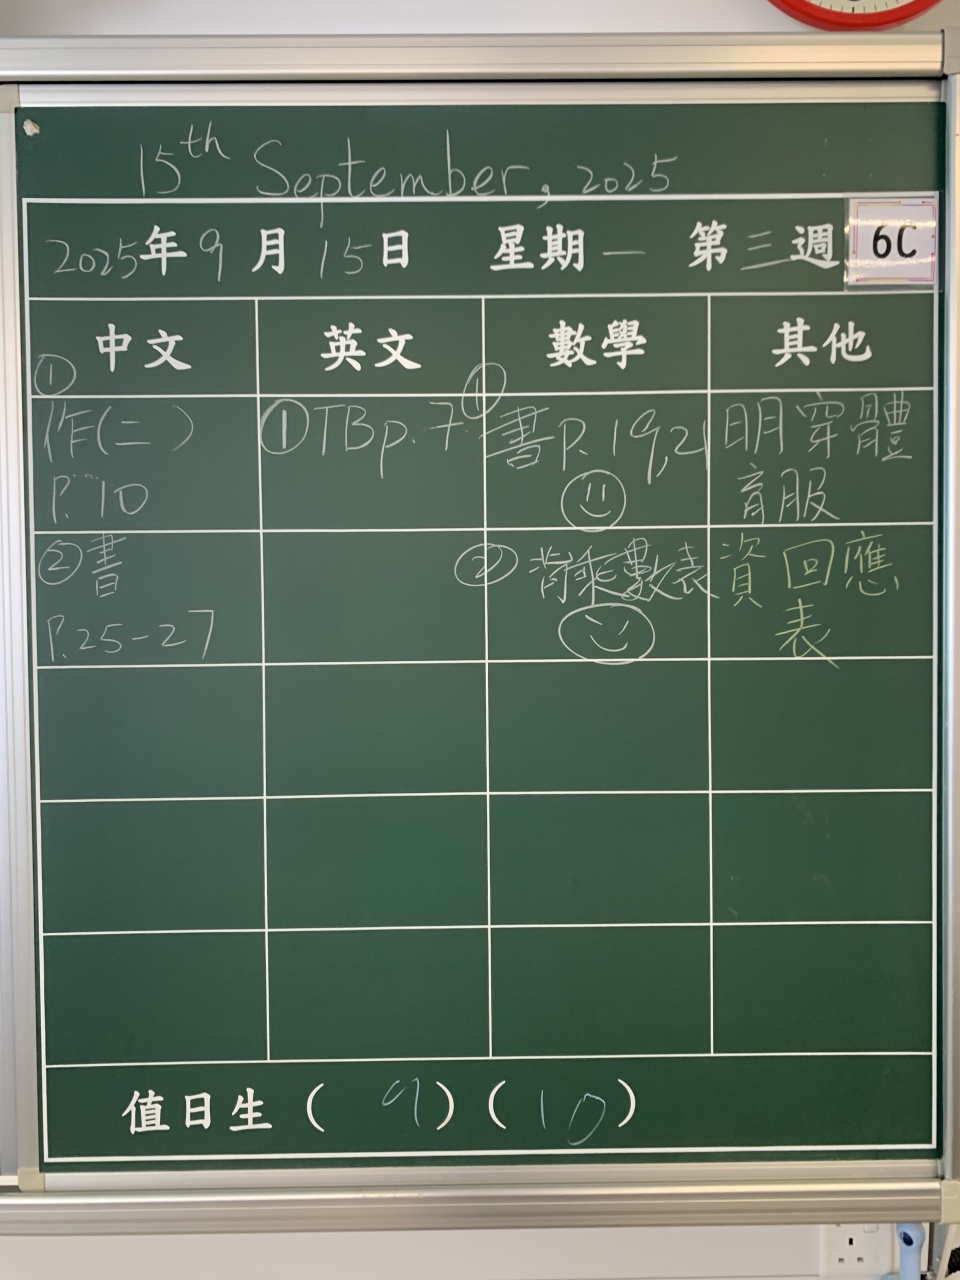 15th September, 2025
2025年9月15日 星期一 第三週 6C
中文 英文 數學 其他
① 作(二)
P.10
① TB p.7
① 書P.19,21
明穿體
育服
② 書
P.25-27
② 背乘數表
資 回應
表
值日生( 9 )( 10 )